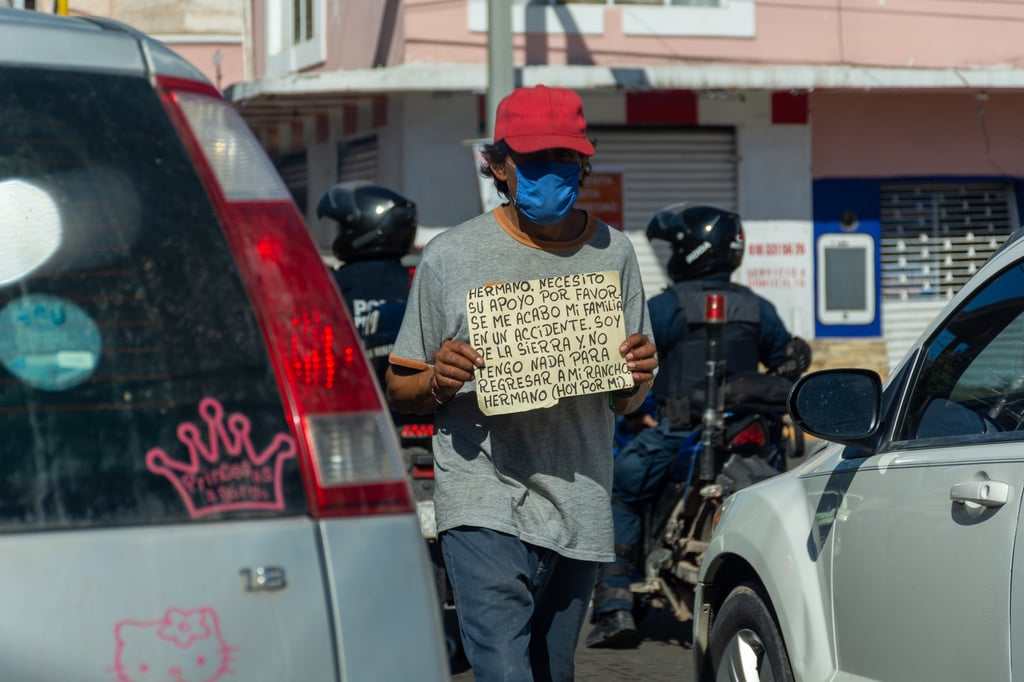 HERMANO. NECESITO
SU APOYO POR FAVOR.
SE ME ACABO MI FAMILIA
EN UN ACCIDENTE. SOY
DE LA SIERRA Y NO
TENGO NADA PARA
REGRESAR A MI RANCHO
HERMANO (HOY POR MI).
Princesas
a bordo
1.8
PO
SERVICIO A
DOMICILIO